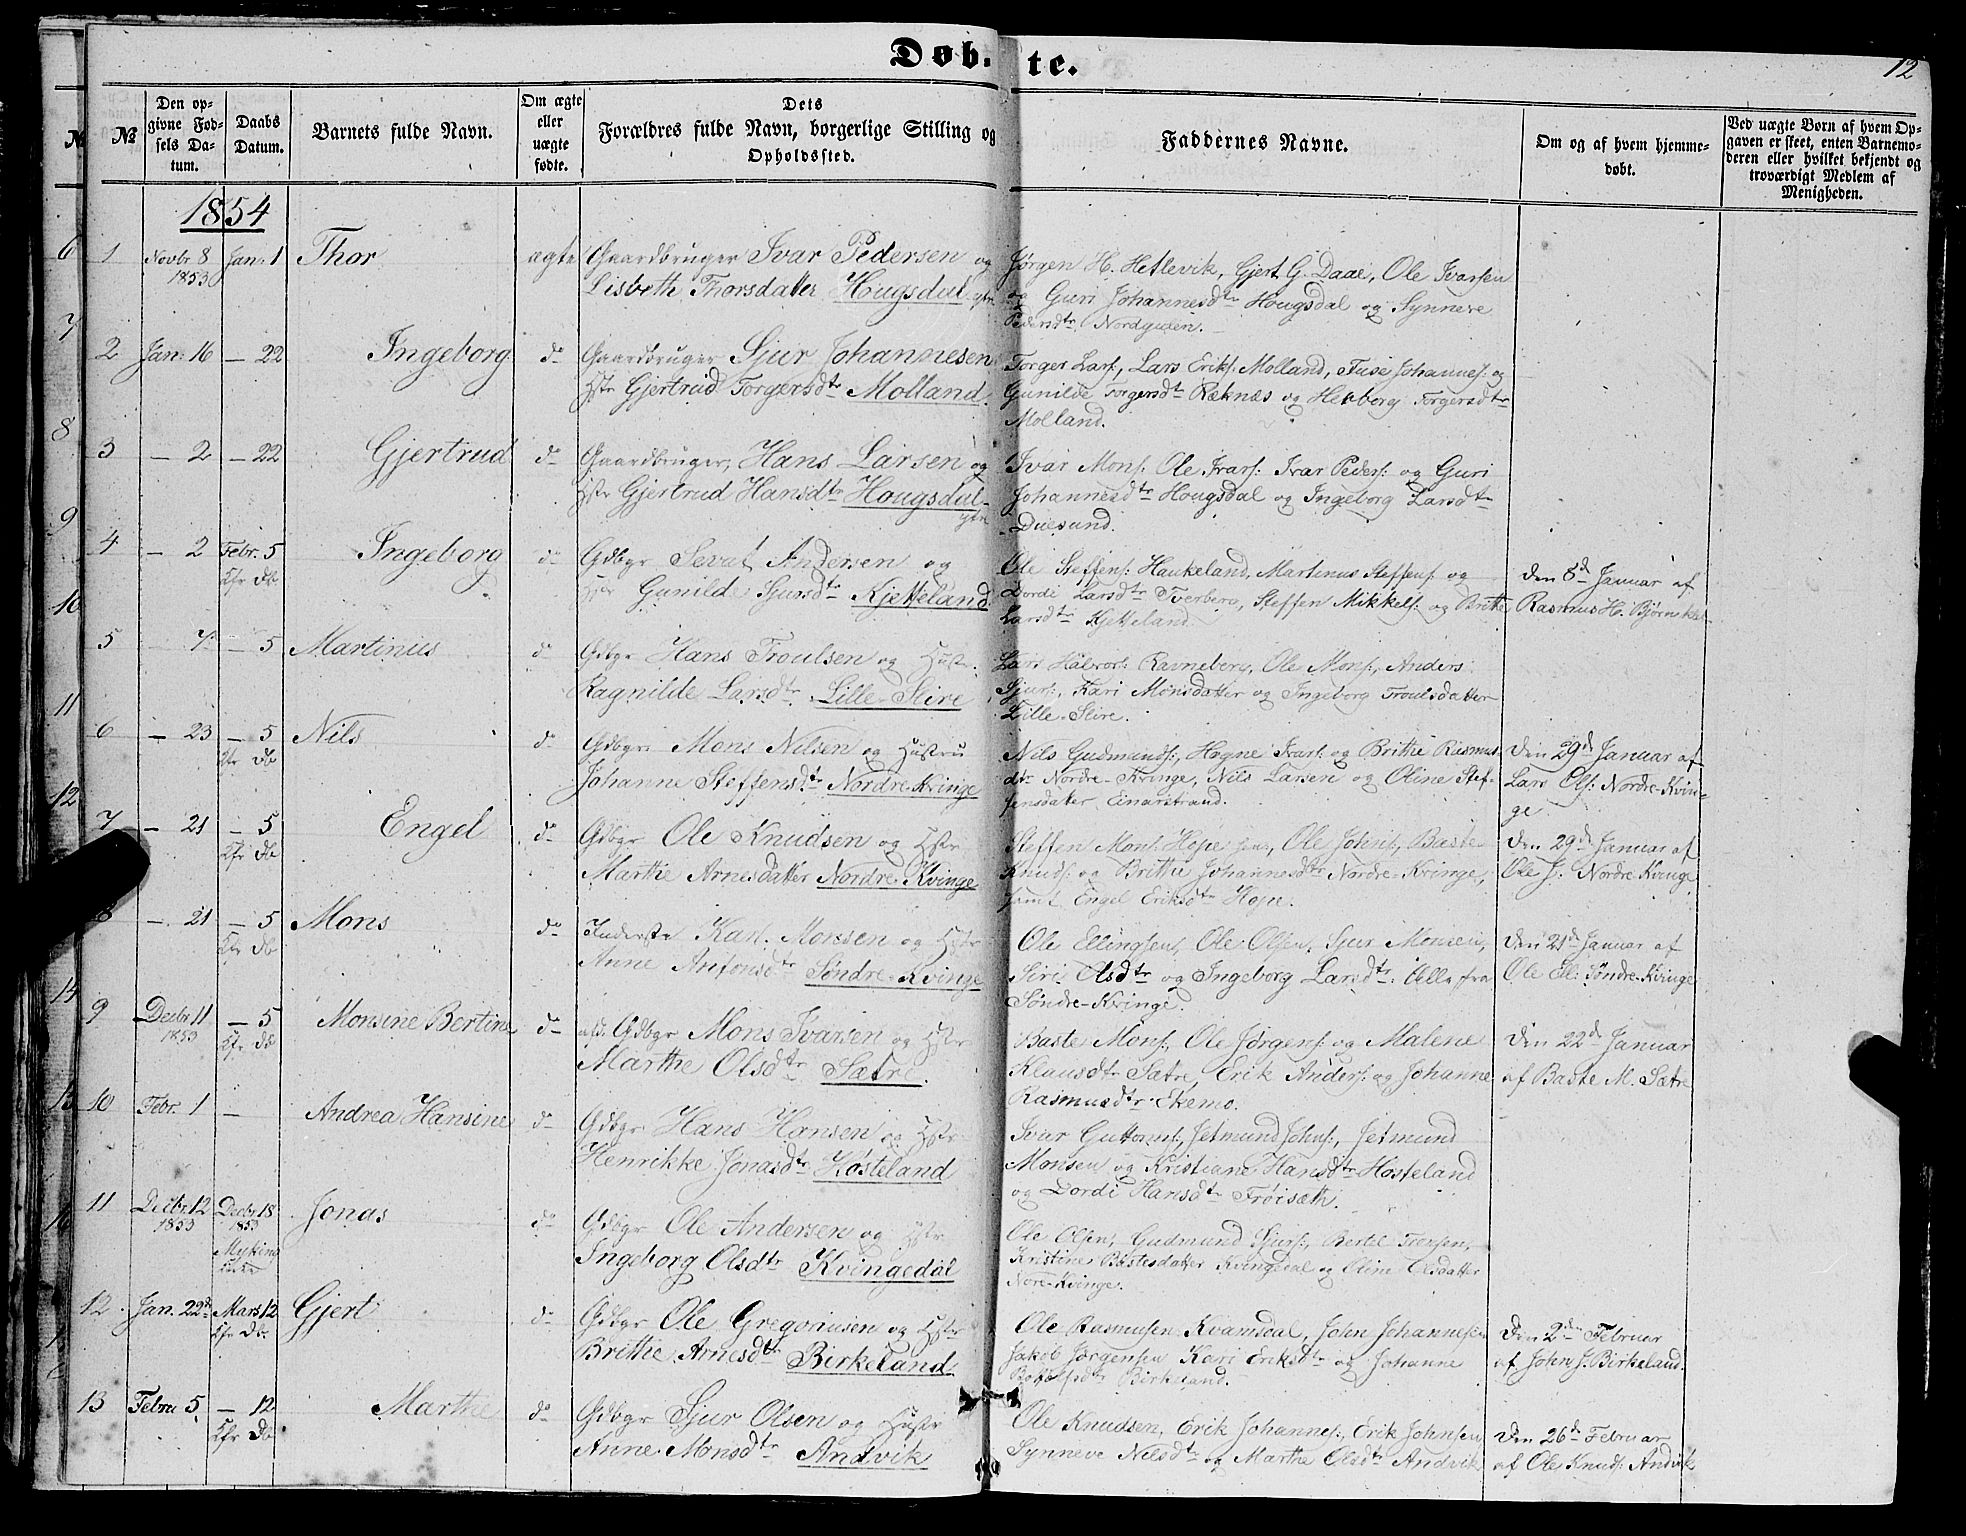 Døb-te.
12
№
Den opgivne Fødsels Datum.
Daabs Datum.
Barnets fulde Navn.
Om ægte eller uægte fødte.
Dets Forældres fulde Navn, borgerlige Stilling og Opholdssted.
Faddernes Navne.
Om og af hvem hjemmedøbt.
Ved uægte Børn af hvem Opgaven er skeet, enten Barnemoderen eller hvilket bekjendt og troværdigt Medlem af Menigheden.
1854
1 Novbr 8 1853 Jan: 1 Thor ægte Gaardbruger Ivar Pedersen og
Lisbeth Thorsdatter Hougsdal
Jørgen H. Hetlevik, Gjert G. Daae, Ole Ivarsen
og Guri Johannesdtr Hougsdal og Synneve
Pedersdtr Nordgulen.
2 Jan: 16 — 22 Ingeborg do Gaardbruger Sjur Johannesen
Hstr Gjertrud Torgersdtr Molland.
Torger Lars:, Lars Eriks: Molland, Tuse Johannes: og
Gunilde Torgersdtr Ræknæs og Herborg Torgersdtr
Molland.
3 — 2 — 22 Gjertrud do Gaardbruger, Hans Larsen og
Hstr Gjertrud Hansdtr Hougsdal
Ivar Mons: Ole Ivars: Ivar Peders: og Guri
Johannesdtr Hougsdal og Ingeborg Larsdtr
Duesund.
4 — 2 Febr. 5 Kfr Db Ingeborg do Gdbgr Sevat Andersen og
Hstr Gunilde Sjursdtr Kjetteland.
Ole Steffens: Haukeland, Martinus Steffens: og
Dordi Larsdtr Tverberg, Steffen Mikkels: og Brithe
Larsdtr Kjetteland.
Den 8de Januar af
Rasmus H. Bjørn
5 — 7 — 5 Martinus do Gdbgr Hans Troulsen og Hustr.
Ragnilde Larsdtr Lille-Skire
Lars Halvors: Ravneberg, Ole Mons:, Anders
Sjurs:, Kari Monsdatter og Ingeborg Troulsdatter
Lille-Skire.
6 — 23 — 5 Kfr Db Nils do Gdbgr Mons Nilsen og Hustru
Johanne Steffensdtr Nordre-Kvinge
Nils Gudmunds:, Hogne Ivars: og Brithe Rasmus
dtr Nordre-Kvinge, Nils Larsen og Oline Stef-
fensdatter Einarstrand.
Den 29de Januar af
Lars Ols: Nordre-Kvin-
ge
7 — 21 — 5 Kfr Db Engel do Gdbgr Ole Knudsen og Hstr
Marthe Arnesdatter Nordre-Kvinge
Steffen Mons: Hope sen, Ole Johns:, Baste
Knuds: og Brithe Johannesdtr Nordre-Kvinge,
samt Engel Eriksdtr Hope.
Den 29de Januar af
Ole J. Nordre-Kvinge
8 — 21 — 5 Kfr Db Mons do Inderste Karl Monsen og Hstr
Anne Anfonsdtr Søndre-Kvinge
Ole Ellingsen, Ole Olsen, Sjur Monsen,
Siri Olsdtr og Ingeborg Larsdtr. Alle fra
Søndre-Kvinge.
Den 21de Januar af
Ole El: Søndre-Kvinge
9 Decbr 11 1853 — 5 Kfr Db Monsine Bertine do afd. Gdbgr Mons Ivarsen og Hstr
Marthe Olsdtr Sætre.
Baste Mons:, Ole Jørgens: og Malene
Klausdtr Sætre, Erik Anders: og Johanne
Rasmusdtr Ekemo.
Den 22de Januar
af Baste M. Sætre
10 Febr. 1 — Andrea Hansine do Gdbgr Hans Hansen og Hstr
Henrikke Jonasdtr Høsteland
Ivar Guttorms:, Jetmund Johns:, Jetmund
Monsen og Kristiane Hansdtr Høsteland
og Dordi Hansdtr Frøisæth.
11 Decbr. 12 1853 Decbr. 18 1853 Mykings Kirke Jonas do Gdbgr Ole Andersen og Hstr
Ingeborg Olsdtr Kvingedal
Ole Olsen, Gudmund Sjurs:, Bertel
Kristine Bastesdatter Kvingedal og Oline Olsdatter
Nore-Kvinge.
12 Jan. 22de Mars 12 Kfr Db Gjert do Gdbgr Ole Gregoriusen og Hstr
Brithe Arnesdtr Birkeland
Ole Rasmusen Kvamsdal, John Johannesen
Jakob Jørgensen Kari Eriksdtr og Johanne
Birkeland.
Den 2den Februar
af John J. Birkeland.
13 Febru 5 — 12 Kfr Db Marthe do Gdbgr Sjur Olsen og Hustr
Anne Monsdtr Andvik
Ole Knudsen, Erik Johannes:, Erik Johnsen
Synneve Nilsdtr og Marthe Olsdtr Andvik
Den 26de Februar
af Ole Knuds: Andvik